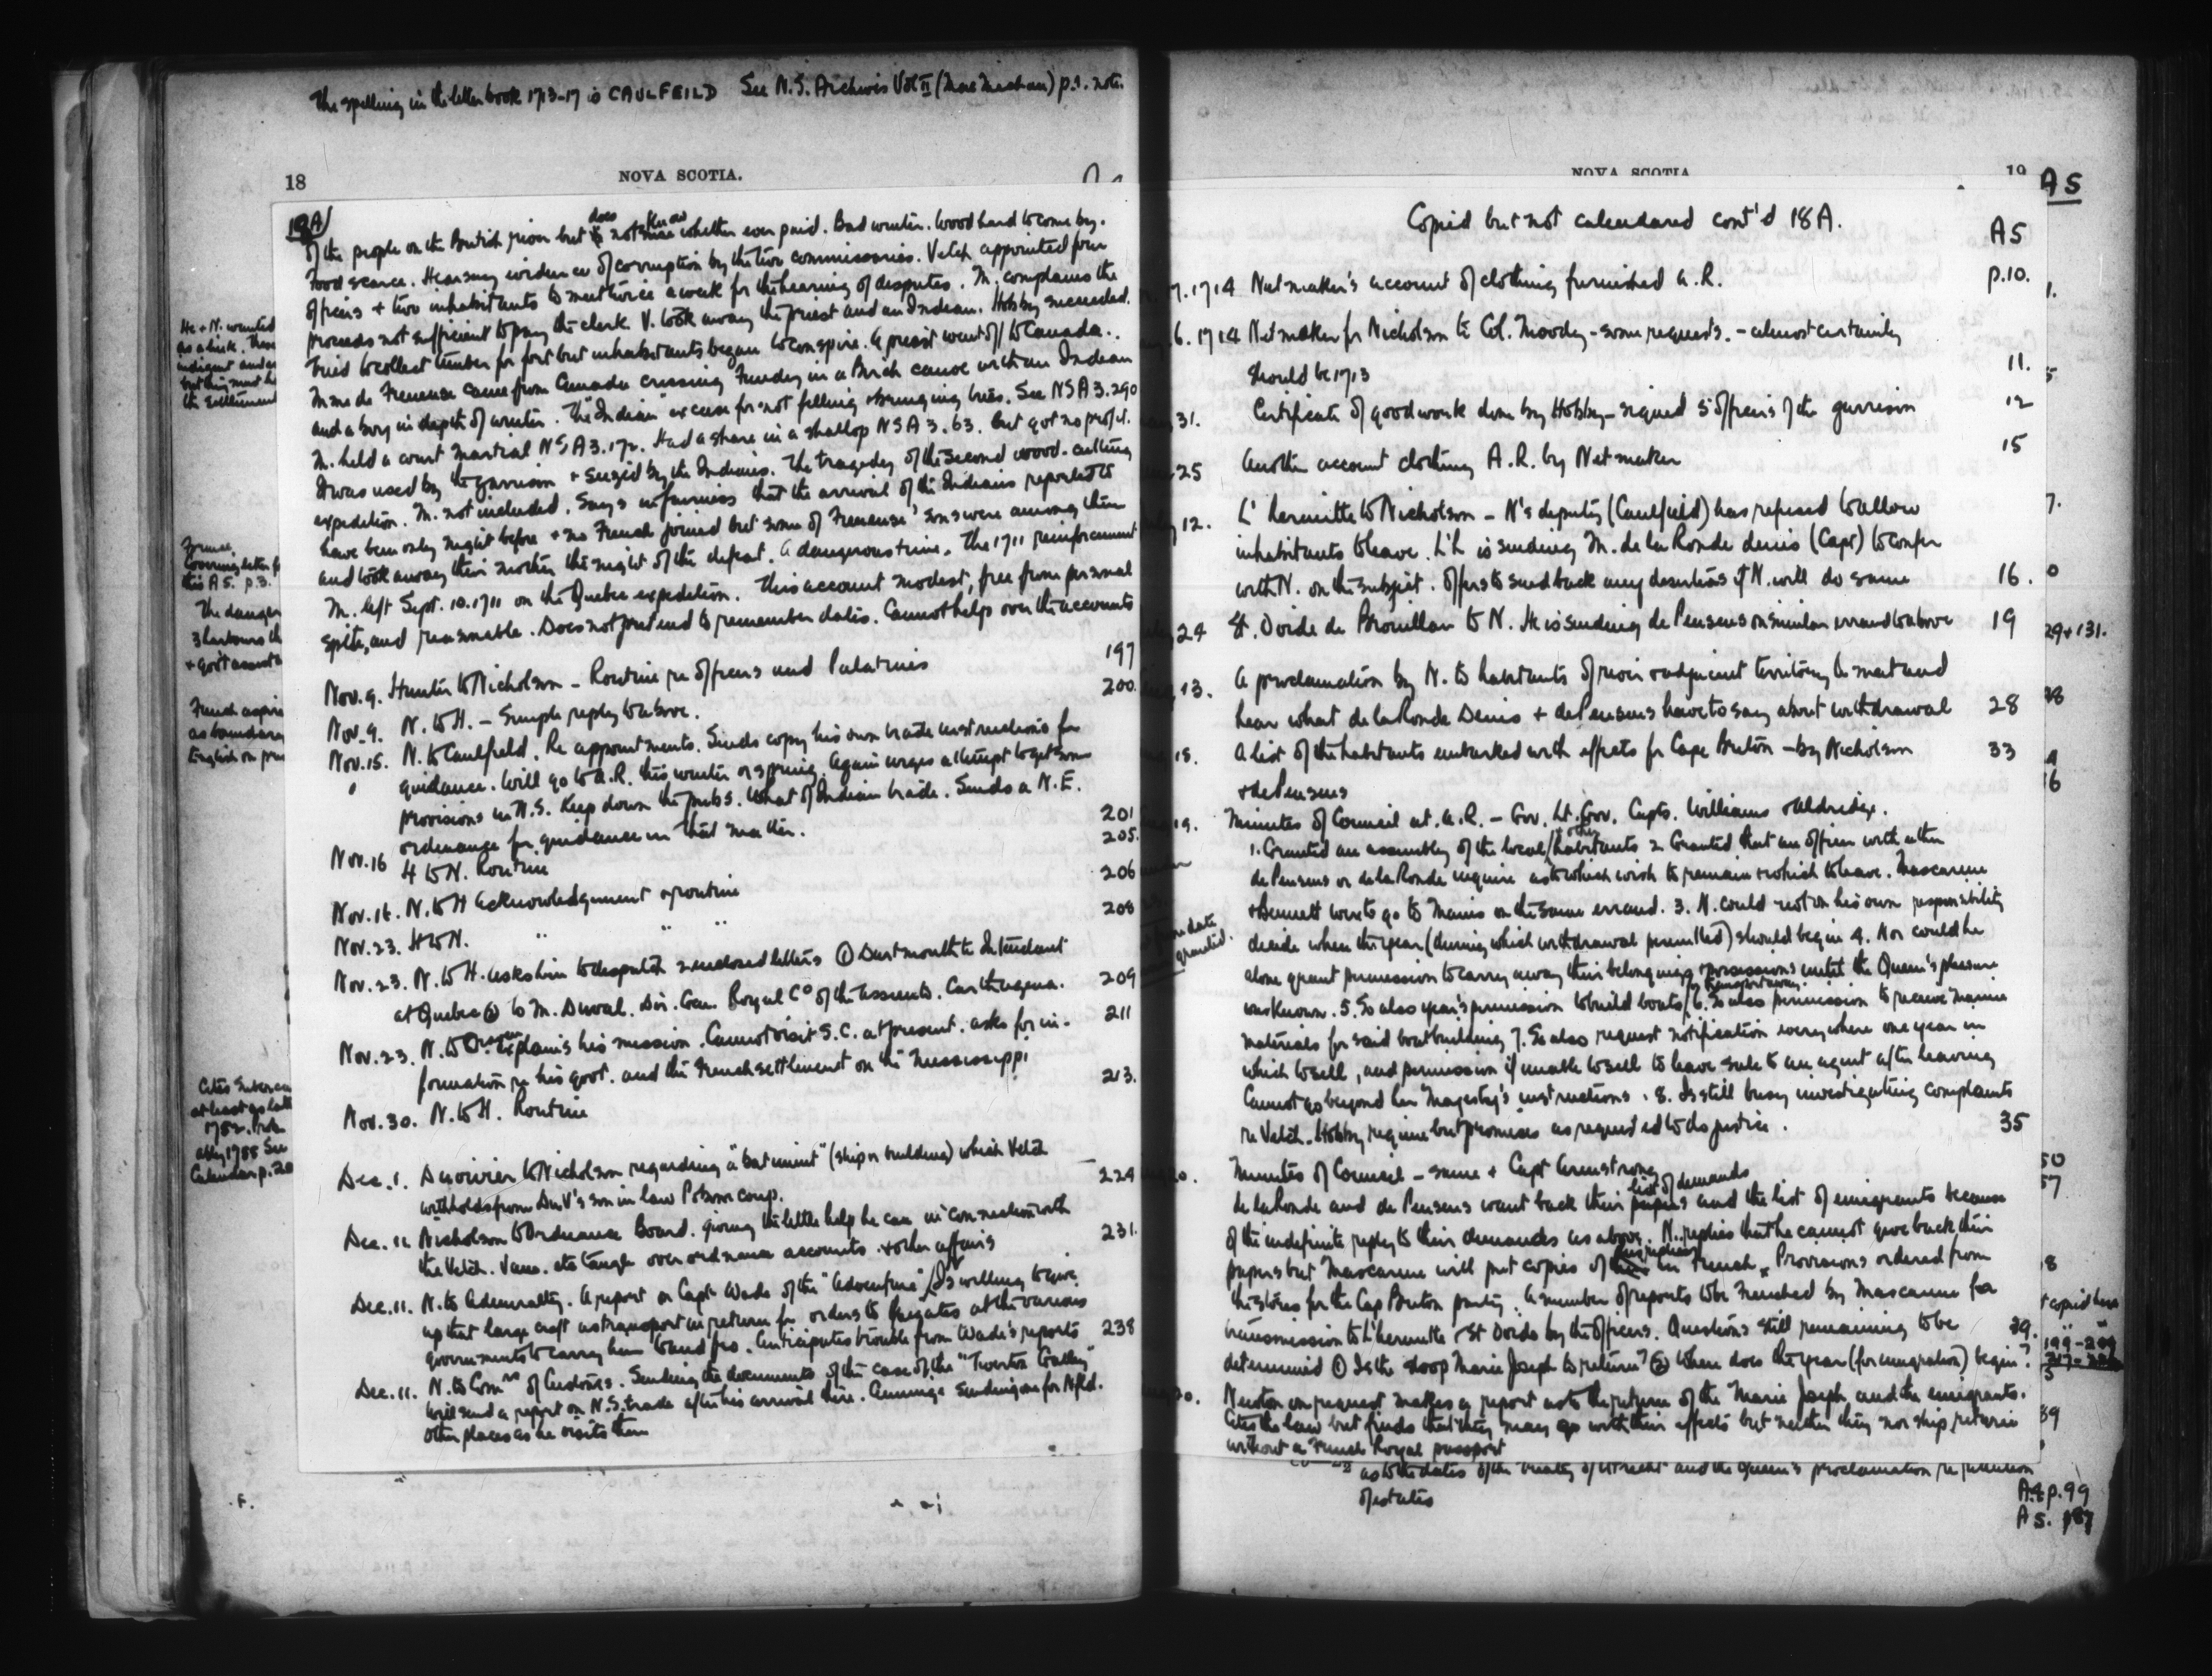 The spelling in the letter book 1713-17 is CAULFEILD See N.S. Archives Vol II (MacMechan) p.1. note.
18
NOVA SCOTIA.
18A
of the people on the British river but does not know whether ever paid. Bad winter. Wood hard to come by.
Food scarce. Hearsay evidence of corruption by the two commissaries. Vetch appointed four
officers + two inhabitants to meet twice a week for the hearing of disputes. M. complains the
proceeds not sufficient to pay the clerk. V. took away the priest and an Indian. Hobby succeeded.
Tried to collect timber for fort but inhabitants began to conspire. A priest went off to Canada.
Mme de Freneuse came from Canada crossing Fundy in a Birch canoe with an Indian
and a boy in depth of winter. The "Indian" excuse for not felling + bringing trees. See NSA 3.290
M. held a court martial NSA 3.172. Had a share in a shallop NSA 3.63. but got no profit.
It was used by the garrison + seized by the Indians. The tragedy of the second wood-cutting
expedition. M. not included. Says in fairness that the arrival of the Indians reported to
have been only night before + no French joined but some of Freneuse' sons were among them
and took away their mother the night of the defeat. A dangerous time. The 1711 reinforcement
M. left Sept. 10. 1711 on the Quebec expedition. This account modest, free from personal
spite, and reasonable. Does not pretend to remember dates. Cannot help over the accounts
Nov. 9. Hunter to Nicholson - Routine re officers and Palatines 197
Nov. 9. N. to H. - Simple reply to above. 200.
Nov. 15. N. to Caulfeild. Re appointments. Sends copy his own trade instructions for
guidance. Will go to A.R. this winter or spring. Again urges attempt to get some
provisions in N.S. Keep down the pubs. What of Indian trade. Sends a N.E.
ordinance for guidance in that matter. 201
Nov. 16 H to N. Routine 205.
Nov. 16. N. to H Acknowledgement + routine 206
Nov. 23. H to N. " " " 208
Nov. 23. N. to H. asks him to despatch 2 enclosed letters ① Dartmouth to Intendant
at Quebec ② to M. Duval. Dir. Gen. Royal Co of the Assiento. Carthagena. 209
Nov. 23. N. to explains his mission. Cannot visit S.C. at present. asks for in-
formation re his govt. and the French settlement on the Mississippi 211
Nov. 30. N. to H. Routine 213.
Dec. 1. Duvivier to Nicholson regarding "batiment" (ship or building) which Vetch
withholds from DuV's son in law Pobomcoup. 229
Dec. 11. Nicholson to Ordnance Board. giving the little help he can in connection with
the Vetch. Vane. etc tangle over ordnance accounts. + other affairs 231.
Dec. 11. N. to Admiralty. A report on Capt Wade of the "Adventure". Is willing to give
up that large craft as transport in return for orders to frigates at the various
governments to carry him to and fro. Anticipates trouble from Wade's reports 238
Dec. 11. N. to Comrs of Customs. Sending the documents of the case of the "Tiverton Galley"
Will send a report on N.S. trade after his arrival there. Arranges sending one for Nfld.
other places as he visits them
He + N. wanted
as a link.
indigent
but they must
the settlement
Covering letter
this A5. p.3.
The danger
3 harbours
+ govt
French
as boundary
English on
Cites
at least as late
1752. Prob
ably 1755 See
Calendar p. 20
NOVA SCOTIA
19
A5
Copied but not calendared cont'd 18A.
A5
7. 1714 Netmaker's account of clothing furnished A.R. p.10.
6. 1714 Netmaker for Nicholson to Col. Moody - some requests. - almost certainly
should be 1713 11.
31. Certificate of good work done by Hobby - signed 5 officers of the garrison 12
25 Another account clothing A.R. by Netmaker 15
12. L'hermitte to Nicholson - N's deputy (Caulfield) has refused to allow
inhabitants to leave. L'L is sending M. de la Ronde denis (Capt) to confer
with N. on the subject. Offers to send back any deserters if N. will do same 16.
24 St. Ovide de Brouillan to N. He is sending de Pensens on similar errand to above 19
13. A proclamation by N. to habitants of river + adjacent territory to meet and
hear what de la Ronde Denis + de Pensens have to say about withdrawal 28
18. A list of the habitants embarked with effects for Cape Breton - by Nicholson 33
+ de Pensens
19. Minutes of Council at A.R. - Gov. Lt. Gov. Capts. Williams + Aldridge.
1. Granted an assembly of the local + other habitants 2. Granted that an officer with either
de Pensens or de la Ronde inquire as to which wish to remain + which to leave. Mascarene
+ Bennett were to go to Manis on the same errand. 3. N. could not on his own responsibility
decide when the year (during which withdrawal permitted) should begin 4. Nor could he
alone grant permission to carry away their belongings + possessions until the Queen's pleasure
was known. 5. So also year's permission to build boats for transport away. 6. So also permission to receive marine
materials for said boatbuilding 7. So also request notification everywhere one year in
which to sell, and permission if unable to sell to leave sale to an agent after leaving
Cannot go beyond her Majesty's instructions. 8. Is still busy investigating complaints
re Vetch-Hobby regime but promises as requested to do justice. 35
20. Minutes of Council - same + Capt Armstrong
de la Ronde and de Pensens want back their list of demands and the list of emigrants because
of the indefinite reply to their demands as above. N. replies that he cannot give back their
papers but Mascarene will put copies of his replies in French. Provisions ordered from
the stores for the Cap Breton party. A number of reports to be Frenched by Mascarene for
transmission to L'hermitte + St Ovide by the officers. Questions still remaining to be
determined ① Is the sloop Marie Joseph to return? ② When does the year (for emigration) begin? 39.
20. Newton on request makes a report as to the return of the Marie Joseph and the emigrants.
Cites the law but finds that they may go with their effects but neither they nor ship return
without a French Royal passport
as to the dates of the Treaty of Utrecht and the Queen's proclamation re
of estates
date
granted.
29+131.
50
57
+ copied here
199-209
A4 p. 99
A5. p87